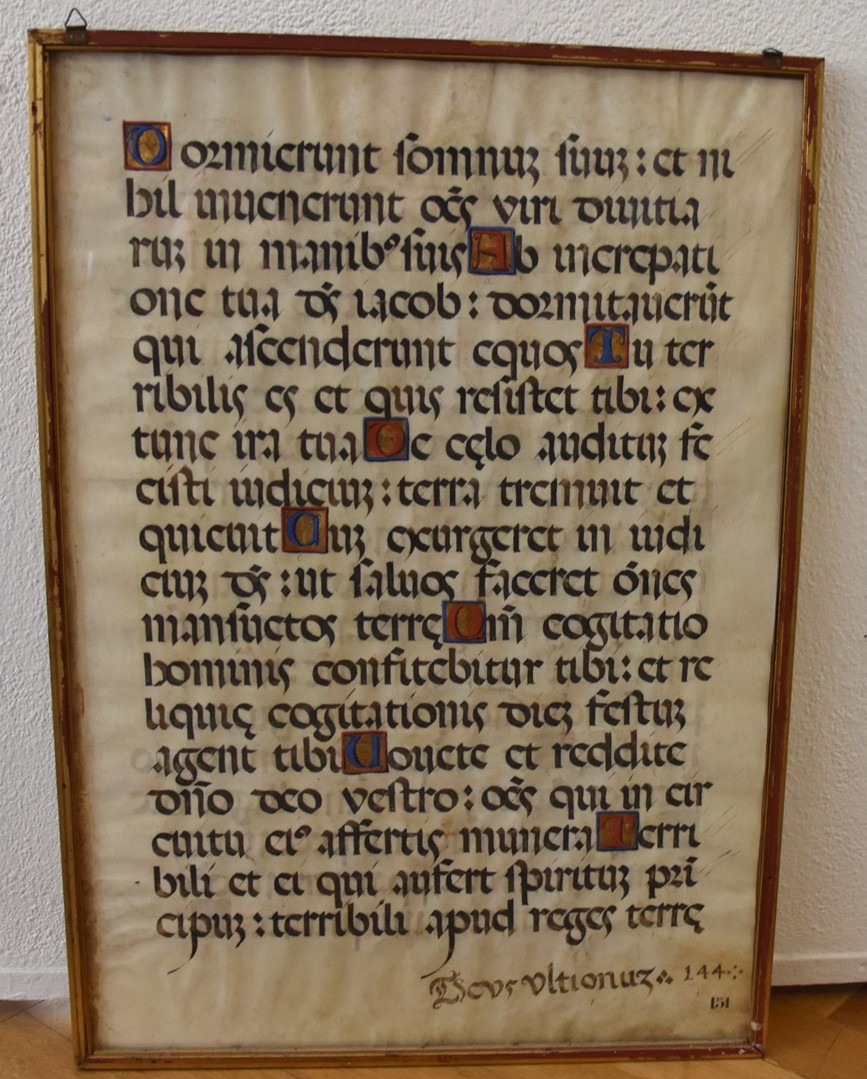 Dormierunt somnuʒ suuʒ : et ni
hil inuenerunt oēs viri diuitia
ruʒ in manibꝰ suis Ab increpati
one tua dš iacob : dormitauerūt
qui ascenderunt equos Tu ter
ribilis es et quis resistet tibi : ex
tunc ira tua De cęlo auditūʒ fe
cisti iudiciuʒ : terra tremuit et
quieuit Cuʒ exurgeret in iudi
ciuʒ dš : ut saluos faceret ōnes
mansuetos terrę Om̄ cogitatio
hominis confitebitur tibi : et re
liquię cogitationis dieʒ festuʒ
agent tibi Uouete et reddite
dn̄o deo vestro : oēs qui in cir
cuitu eiꝰ affertis munera Terri
bili et ei qui aufert spirituʒ pri
cipuʒ : terribili apud reges terrę
Deus ultionuʒ 144
151